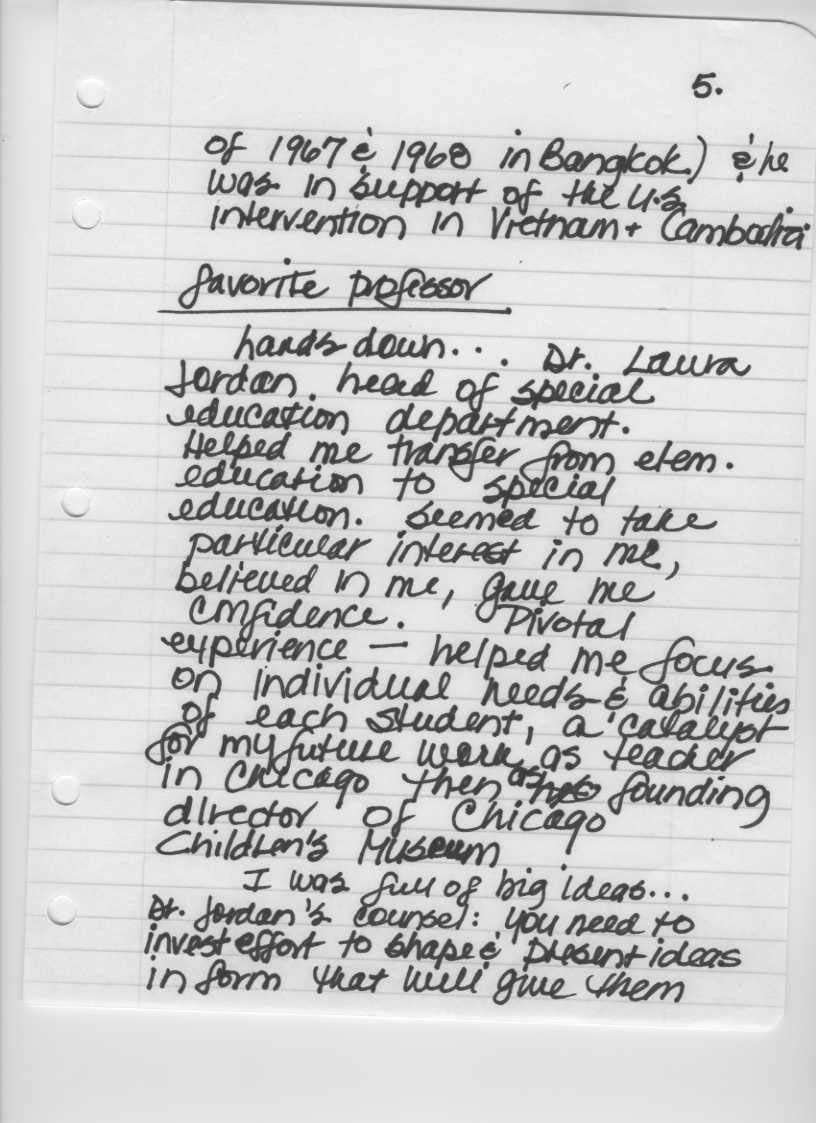 5.
of 1967 & 1968 in Bangkok) & he
was in support of the U.S.
intervention in Vietnam + Cambodia
favorite professor
hands down... Dr. Laura
Jordan. head of special
education department.
Helped me transfer from elem.
education to special
education. Seemed to take
particular interest in me,
believed in me, gave me
confidence. Pivotal
experience — helped me focus
on individual needs & abilities
of each student, a catalyst
for my future work as teacher
in Chicago then as founding
director of Chicago
Children's Museum
I was full of big ideas...
Dr. Jordan's counsel: you need to
invest effort to shape & present ideas
in form that will give them